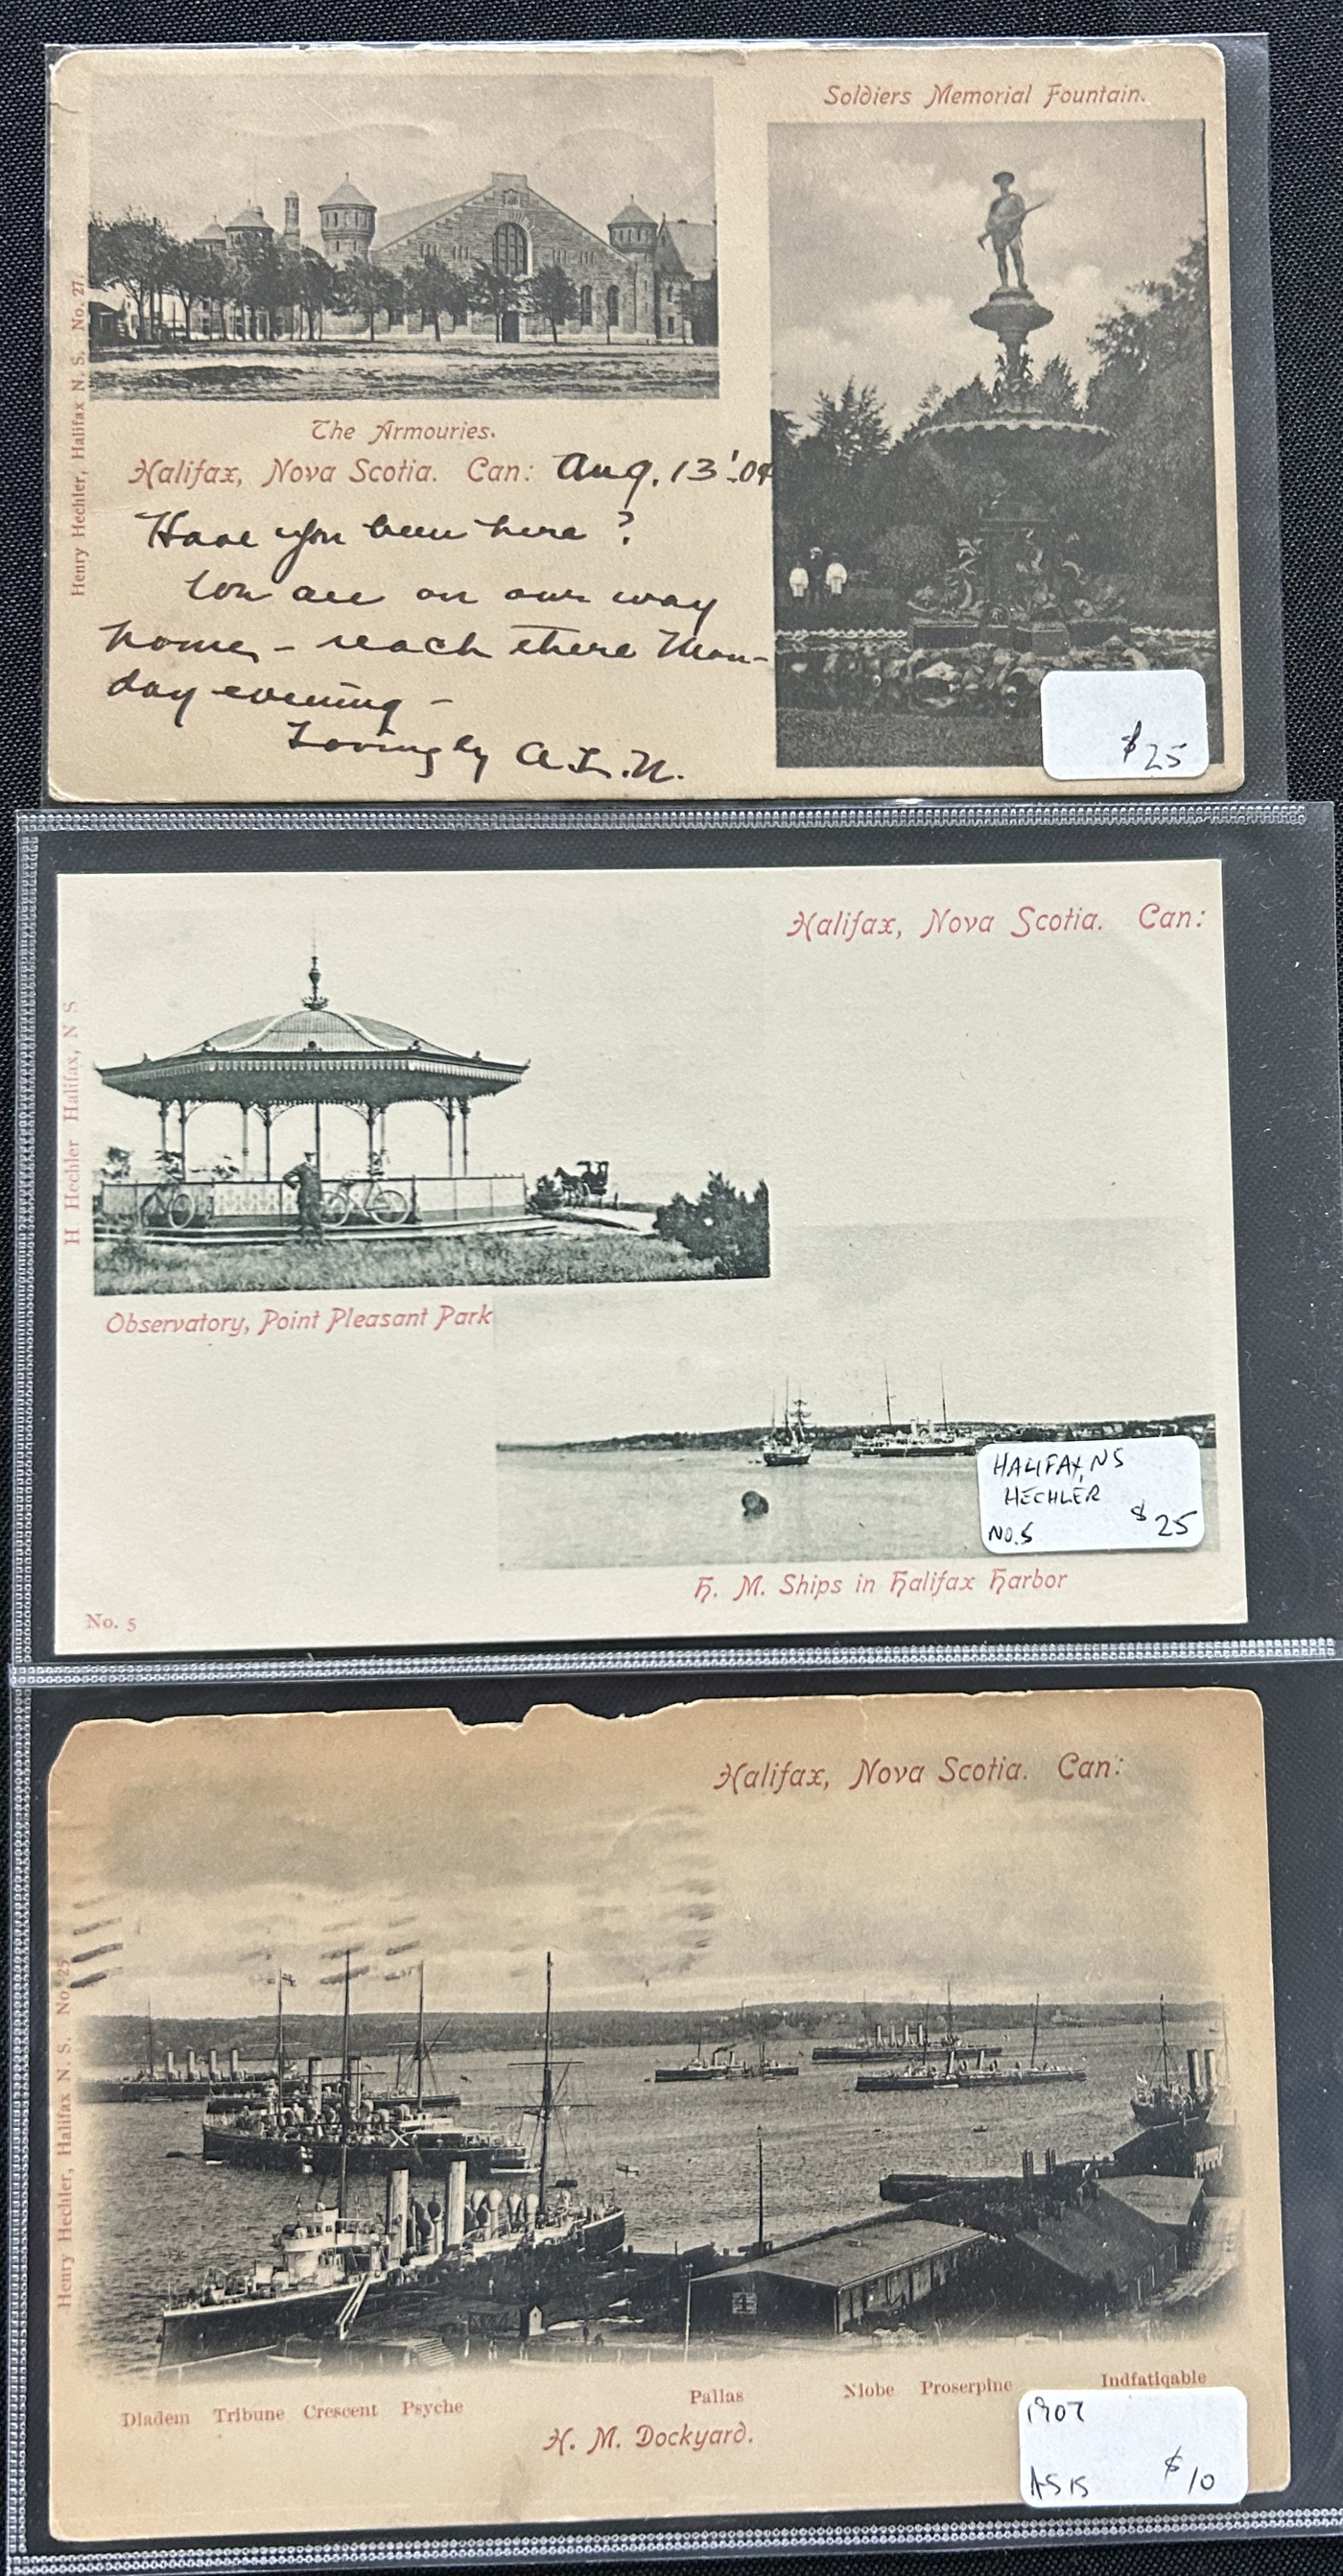 Soldiers Memorial Fountain.
Henry Hechler, Halifax N. S. No. 27.
The Armouries.
Halifax, Nova Scotia. Can: Aug. 13'.04
Have you been here?
We are on our way
home, - reach there Mon-
day evening -
Lovingly A.L.N.
$25
Halifax, Nova Scotia. Can:
H Hechler Halifax, N S
Observatory, Point Pleasant Park
HALIFAX, NS
HECHLER
NO.5 $25
H. M. Ships in Halifax Harbor
No. 5
Halifax, Nova Scotia. Can:
Henry Hechler, Halifax N. S. No.
4
Diadem Tribune Crescent Psyche Pallas Niobe Proserpine Indfatiqable
H. M. Dockyard.
1907
AS IS $10